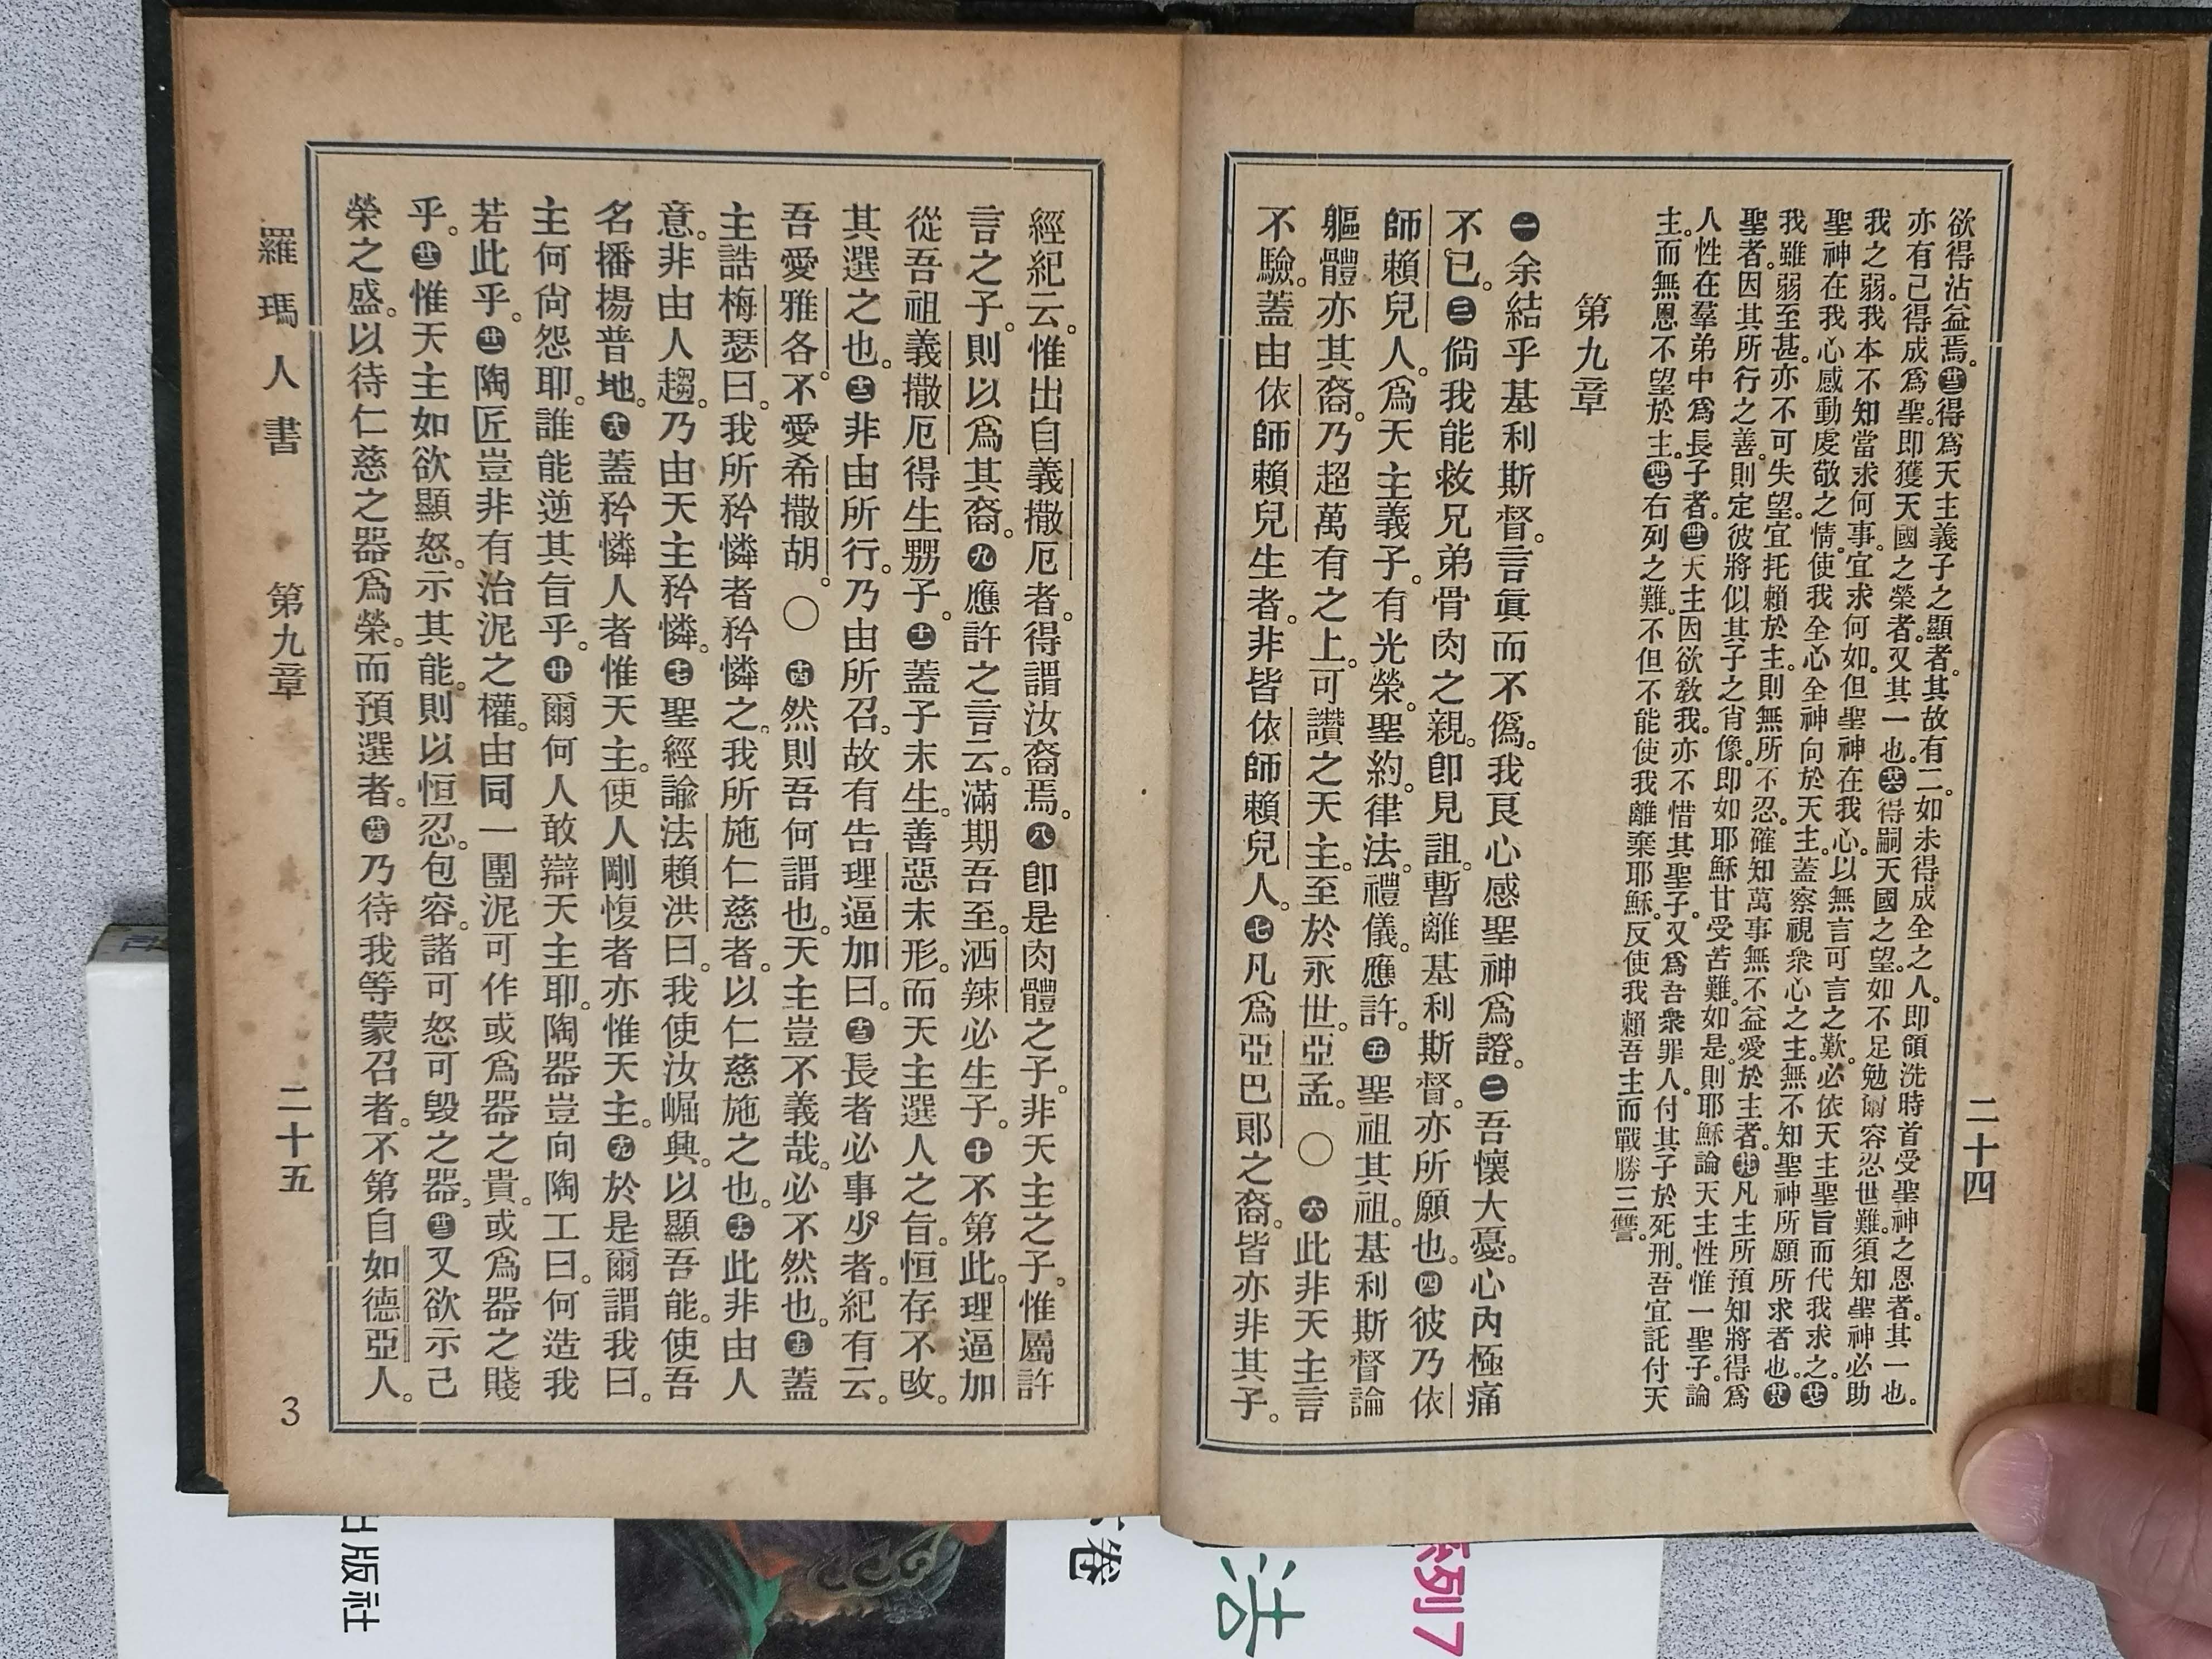 二十四
欲得沾益焉。㊁得爲天主義子之顯者。其故有二。如未得成全之人。即領洗時首受聖神之恩者。其一也。
亦有已得成爲聖。即獲天國之榮者。又其一也。㊅得嗣天國之望。如不足勉爾容忍世難。須知聖神必助
我之弱。我本不知當求何事。宜求何如。但聖神在我心。以無言可言之歎。必依天主聖旨而代我求之。㊆
聖神在我心感動虔敬之情。使我全心全神向於天主。蓋察視衆心之主。無不知聖神所願所求者也。㊇
我雖弱至甚。亦不可失望。宜托賴於主。則無所不忍。確知萬事無不益愛於主者。㊈凡主所預知將得爲
聖者。因其所行之善。則定彼將似其子之肖像。即如耶穌甘受苦難。如是。則耶穌論天主性惟一聖子。論
人性在羣弟中爲長子者。卌天主因欲救我。亦不惜其聖子。又爲吾衆罪人。付其子於死刑。吾宜託付天
主。而無恩不望於主。卌右列之難。不但不能使我離棄耶穌。反使我賴吾主而戰勝三讐。
第九章
㊀余結乎基利斯督。言眞而不僞。我良心感聖神爲證。㊁吾懷大憂。心內極痛
不已。㊂倘我能救兄弟骨肉之親。卽見詛。暫離基利斯督。亦所願也。㊃彼乃依
師賴兒人。爲天主義子。有光榮。聖約。律法。禮儀。應許。㊄聖祖其祖。基利斯督論
軀體亦其裔。乃超萬有之上。可讚之天主。至於永世。亞孟。〇㊅此非天主言
不驗。蓋由依師賴兒生者。非皆依師賴兒人。㊆凡爲亞巴郞之裔。皆亦非其子。
經紀云。惟出自義撒厄者。得謂汝裔焉。㊇卽是肉體之子。非天主之子。惟屬許
言之子。則以爲其裔。㊈應許之言云。滿期吾至。洒辣必生子。㊉不第此。理逼加
從吾祖義撒厄得生孖子。十一蓋子未生。善惡未形。而天主選人之旨。恒存不改。
其選之也。十二非由所行。乃由所召。故有告理逼加曰。十三長者必事少者。紀有云。
吾愛雅各。不愛希撒胡。〇十四然則吾何謂也。天主豈不義哉。必不然也。十五蓋
主誥梅瑟曰。我所矜憐者矜憐之。我所施仁慈者。以仁慈施之也。十六此非由人
意。非由人趨。乃由天主矜憐。十七聖經諭法賴洪曰。我使汝崛興。以顯吾能。使吾
名播揚普地。十八蓋矜憐人者惟天主。使人剛愎者亦惟天主。十九於是爾謂我曰。
主何尙怨耶。誰能逆其旨乎。廿爾何人敢辯天主耶。陶器豈向陶工曰。何造我
若此乎。廿一陶匠豈非有治泥之權。由同一團泥可作或爲器之貴。或爲器之賤
乎。廿二惟天主如欲顯怒。示其能。則以恒忍。包容。諸可怒可毀之器。廿三又欲示己
榮之盛。以待仁慈之器爲榮。而預選者。廿四乃待我等蒙召者。不第自如德亞人。
羅瑪人書 第九章 二十五 3
出版社
卷
法
系列7